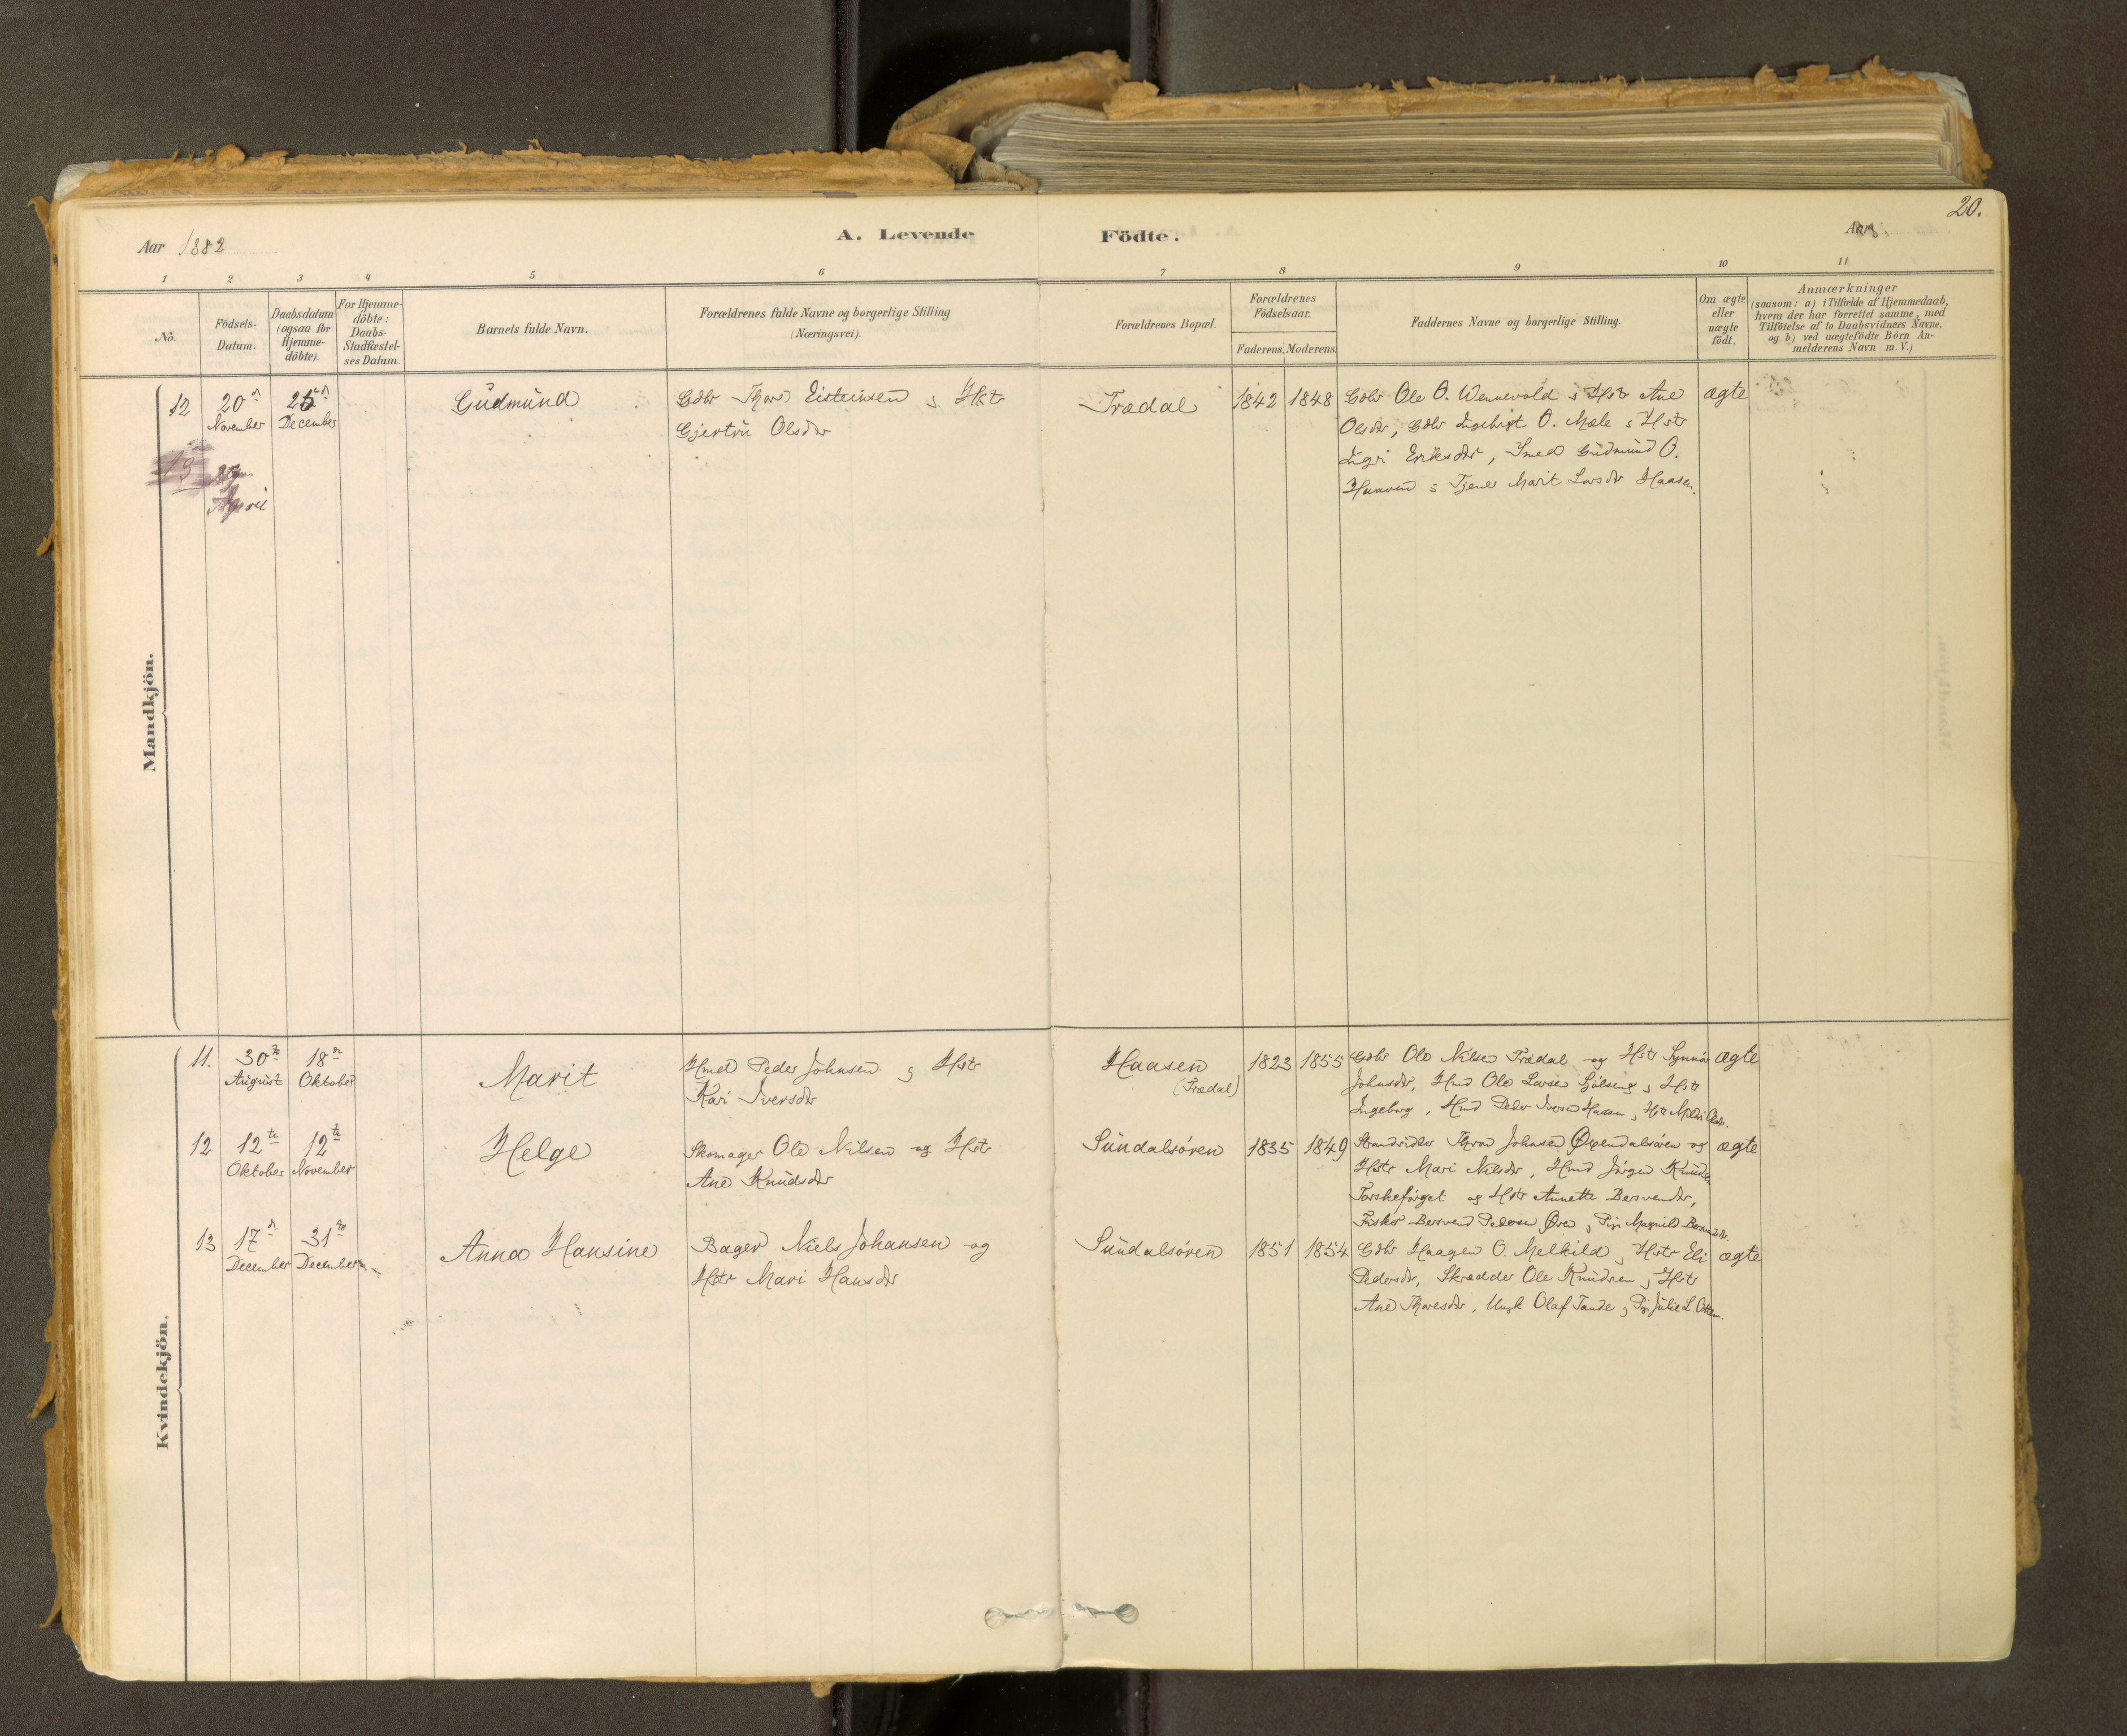 20.
Aar 1882
A. Levende Födte.
Aar
1 2 3 4 5 6 7 8 9 10 11
No.
Födsels-Datum.
Daabsdatum (ogsaa for Hjemme-döbte).
For Hjemme-döbte: Daabs-Stadfæstel-ses Datum.
Barnets fulde Navn.
Forældrenes fulde Navne og borgerlige Stilling
(Næringsvei).
Forældrenes Bopæl.
Forældrenes Födselsaar.
Faderens. Moderens.
Faddernes Navne og borgerlige Stilling.
Om ægte eller uægte födt.
Anmærkninger
(saasom: a) i Tilfælde af Hjemmedaab,
hvem der har forrettet samme, med
Tilföielse af to Daabsvidners Navne.
og b) ved uægtefödte Börn An-
melderens Navn m. V.)
Mandkjön.
12 20de 25de Gudmund Gdbr Thore Eisteinsen og Hstr Trædal 1842 1848 Gdbr Ole O. Wennevold og Hstr Ane ægte
November December Gjertru Olsdtr Olsdtr, Gdbr Ingebrigt O. Mæle og Hstr
Ingri Eriksdtr, Gudmund O.
13 og Tjener Marit Larsdtr Haasen.
April
Kvindekjön.
11. 30te 18de Marit Hmd Peder Johnsen og Hstr Haasen 1823 1855 Gdbr Ole Nilsen Trædal og Hstr Synnöv ægte
August Oktober Kari Iversdtr (Trædal) Johnsdtr, Hmd Ole Larsen og Hstr
Ingeborg, Hmd Peder Iversen Haasen, Hstr
12 12te 12te Helge Skomager Ole Nilsen og Hstr Sundalsören 1835 1849 Strandsidder Thron Johnsen Öxendalsören og ægte
Oktober November Ane Knudsdtr Hstr Mari Nilsdtr, Hmd Jörgen Knudsen
og Hstr Annette Bersvendsdtr,
Fisker Bersvend Pedersen Ören, Pige Magnild
13 17de 31te Anna Hansine Bager Niels Johansen og Sundalsören 1851 1854 Gdbr Haagen O. Melkild, Hstr Eli ægte
December December Hstr Mari Hansdtr Pedersdtr, Skrædder Ole Knudsen, Hstr
Ane Thoresdtr, Ungk Olaf Tande, Pige Julie L.